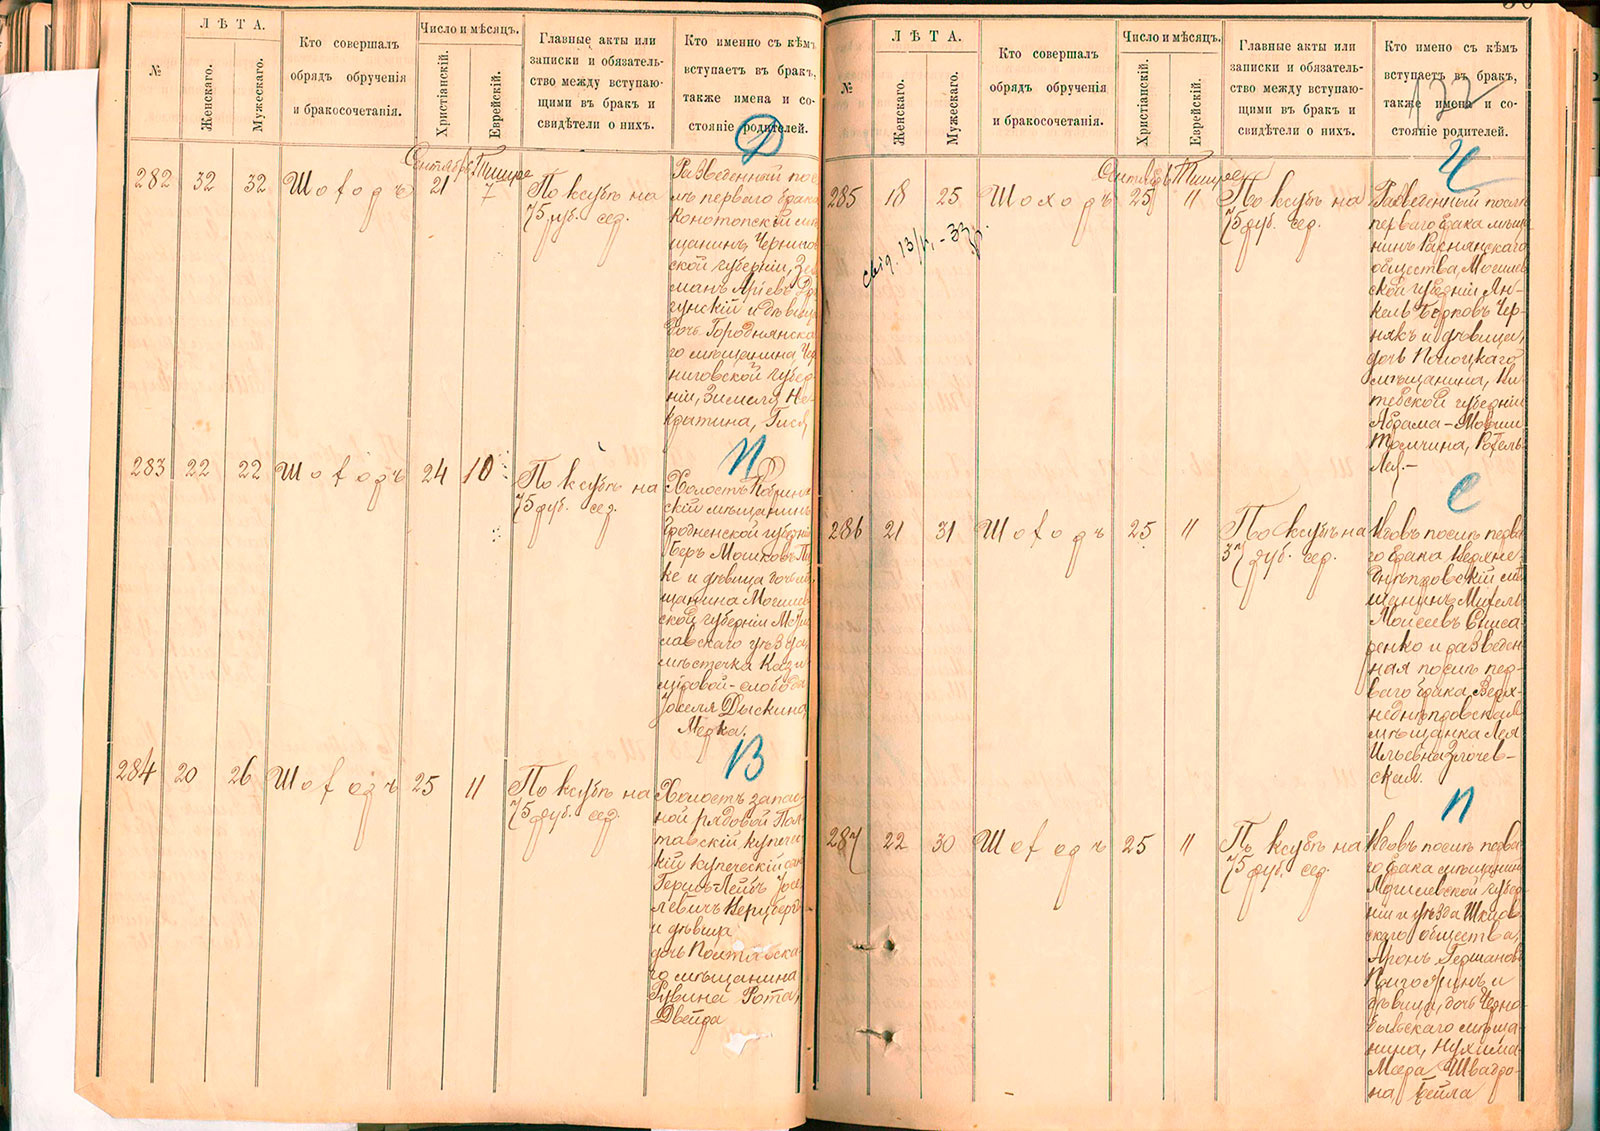 №
ЛѢТА.
Женскаго.
Мужескаго.
Кто совершалъ
обрядъ обрученія
и бракосочетанія.
Число и мѣсяцъ.
Христіанскій.
Еврейскій.
Главные акты или
записки и обязатель-
ство между вступаю-
щими въ бракъ и
свидѣтели о нихъ.
Кто именно съ кѣмъ
вступаетъ въ бракъ,
также имена и со-
стояніе родителей.
Д
282 32 32 Шоходъ
Сентября Тишре
21 7
По ксубѣ на
75 руб. сер.
Разведенный пос
лѣ перваго брака
Конотопскій мѣ
щанинъ, Чернигов
ской губерніи,
манъ Аріевъ
гунскій и дѣвица
дочь Городнянска
го мѣщанина Чер
ниговской губер
ніи, Зимеля
П
283 22 22 Шоходъ 24 10
По ксубѣ на
75 руб. сер.
Холостъ Кобрин
скій мѣщанинъ
Гродненской губерніи
Беръ Мошковъ
ке и дѣвица дочь мѣ
щанина Могилев
ской губерніи Мсти
славскаго уѣзда,
мѣстечка Кази
міровой-слободы
Іоселя Дыскина,
Мерка.
В
284 20 26 Шоходъ 25 11
По ксубѣ на
75 руб. сер.
Холостъ запас
ной рядовой Пол
тавскій, купечес
кій купеческій сынъ
Гершъ-Лейбъ Іосе
левичъ
и дѣвица
дочь Полтавска
го мѣщанина
Рувина Рота,
Двейра
№
ЛѢТА.
Женскаго.
Мужескаго.
Кто совершалъ
обрядъ обрученія
и бракосочетанія.
Число и мѣсяцъ.
Христіанскій.
Еврейскій.
Главные акты или
записки и обязатель-
ство между вступаю-
щими въ бракъ и
свидѣтели о нихъ.
Кто имено съ кѣмъ
вступаетъ въ бракъ,
также имена и со-
стояніе родителей.
132
Ч
285 18 25 Шоходъ
Сентябрь Тишре
25 11
По ксубѣ на
75 руб. сер.
Разведенный послѣ
перваго брака мѣща
нинъ
общества, Могилев
ской губерніи Ян-
кель Берковъ Чер-
някъ и дѣвица,
дочь Полоцкаго
мѣщанина, Ви-
тебской губерніи
Абрама-Мовши
Лея.-
С
286 21 31 Шоходъ 25 11
По ксубѣ на
37 руб. сер.
Вдовъ послѣ перва
го брака Верхне-
днѣпровскій мѣ
щанинъ Михель
Моисеевъ Слиса
ренко и разведен
ная послѣ пер-
ваго брака Верх-
неднѣпровская
мѣщанка Лея
Ильевна Згочев-
ская.
П
287 22 30 Шоходъ 25 11
По ксубѣ на
75 руб. сер.
Вдовъ послѣ перва
го брака мѣщанинъ
Могилевской губер
ніи и уѣзда Шклов
скаго общества,
Аронъ Гершановъ
Пригожинъ и
дѣвица, дочь Черно
быльскаго мѣща-
нина, Нухима-
Меера Швадро-
на, Бейла